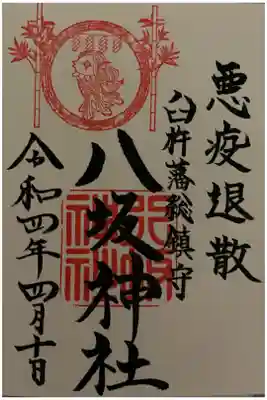 悪疫退散
臼杵藩総鎮守
八坂神社
令和四年四月十日